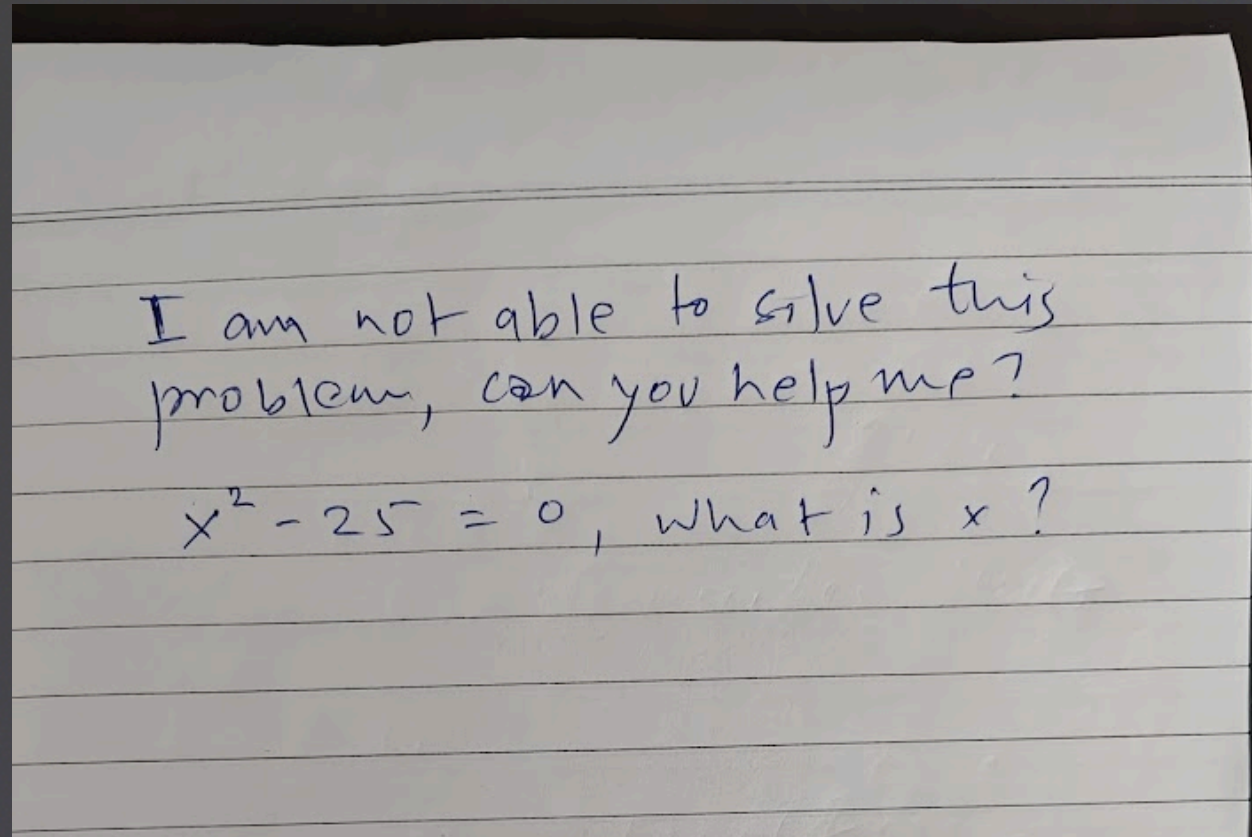 I am not able to silve this
problem, can you help me?
x² - 25 = 0, what is x?